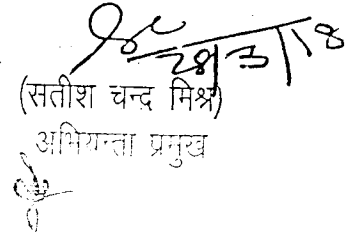 28/3/18
(सतीश चन्द्र मिश्र)
अभियन्ता प्रमुख